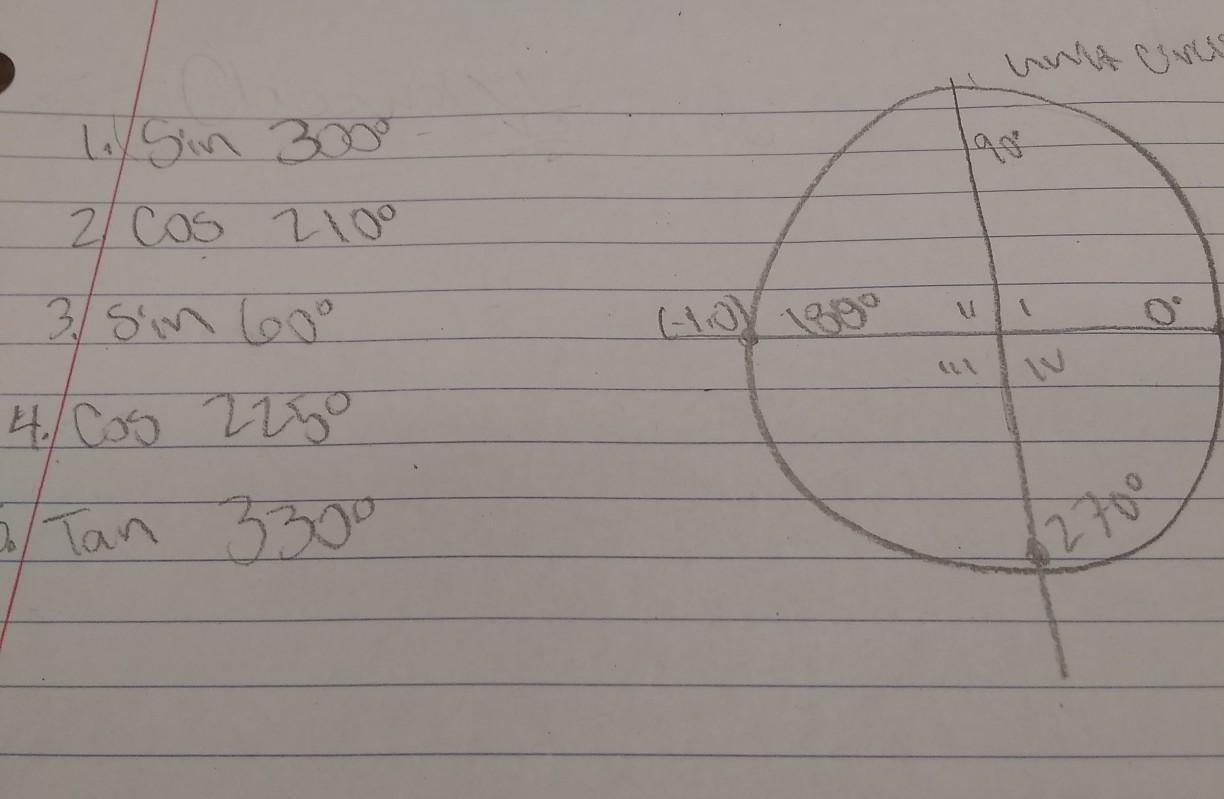 1. Sin 300°
2. Cos 210°
3. Sin 60°
4. Cos 225°
. Tan 330°
Unit
90°
(-1,0) 180° II I 0°
III IV
270°